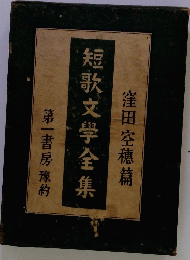 窪田空穗篇
短歌文學全集
第一書房 豫約